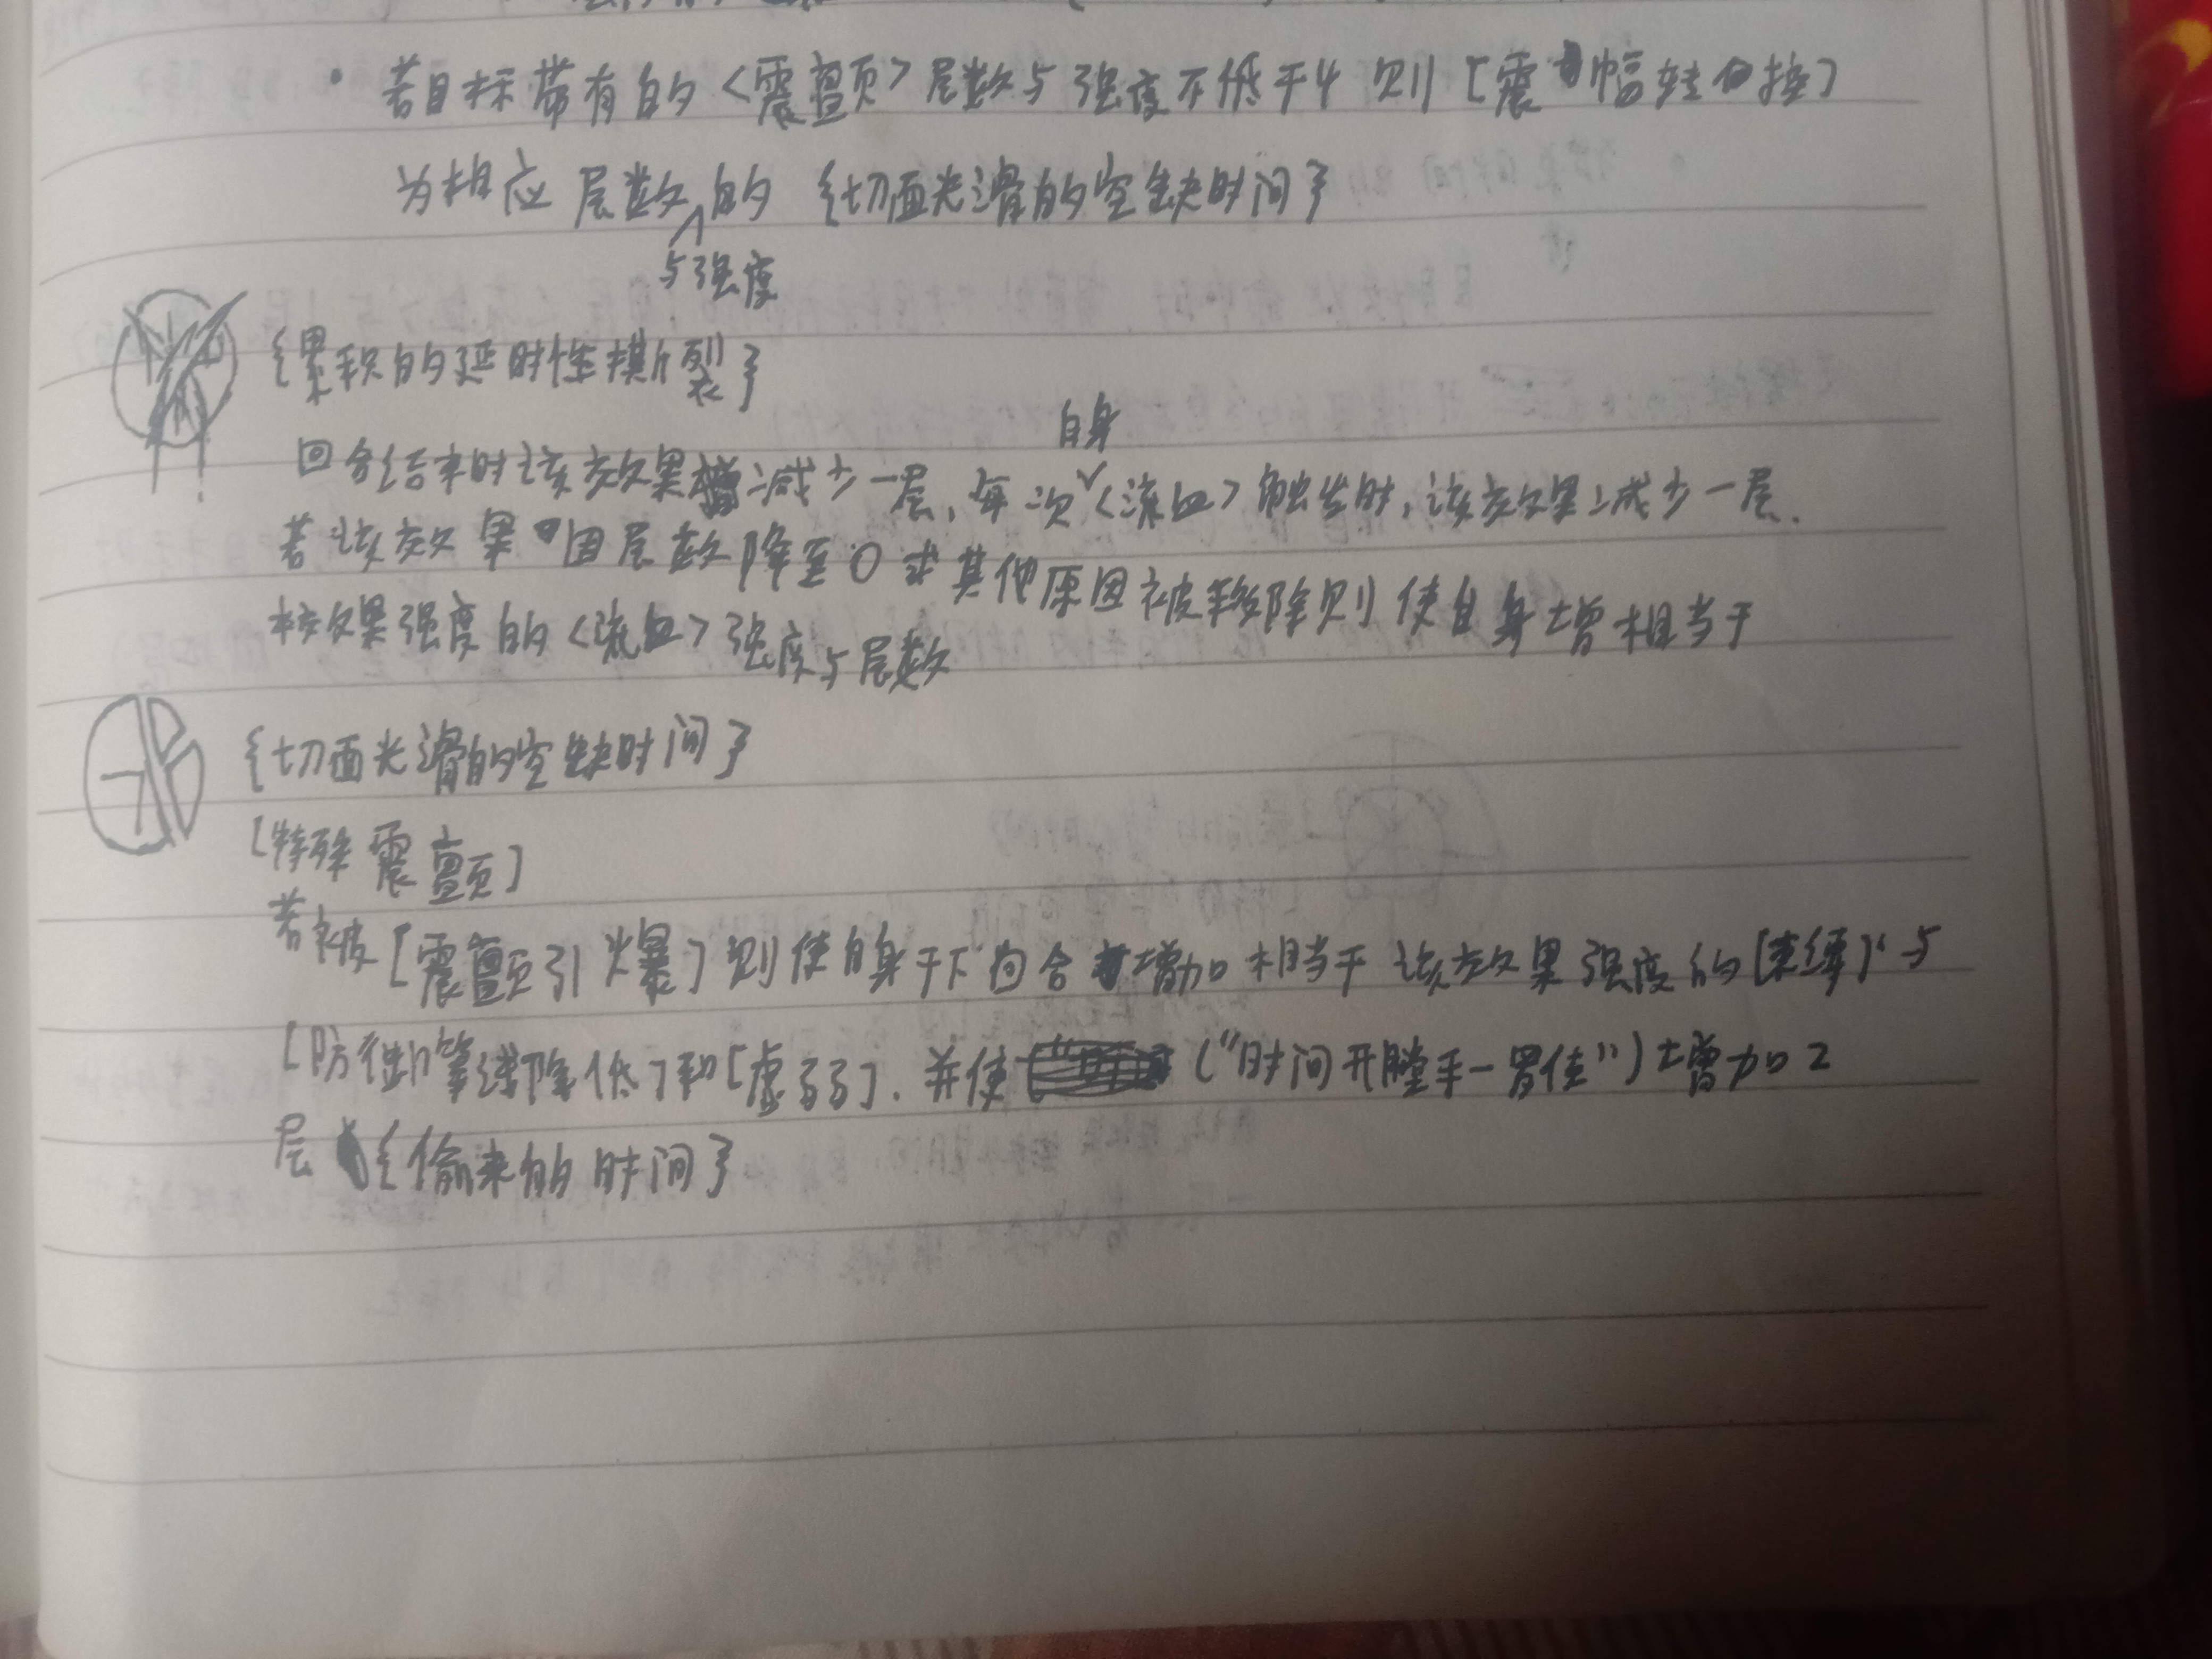 • 若目标带有的<震颤>层数与强度不低于4 则[震幅转换]
为相应层数与强度的{切面光滑的空缺时间}
{累积的延时性撕裂}
回合结束时该效果减少一层,每次自身<流血>触发时,该效果减少一层.
若该效果因层数降至0或其他原因被移除则使自身增相当于
该效果强度的<流血>强度与层数
{切面光滑的空缺时间}
[特殊震颤]
若被[震颤引爆]则使自身于下回合增加相当于该效果强度的[束缚]与
[防御等级降低]和[虚弱].并使("时间开膛手—罗佳")增加2
层{偷来的时间}